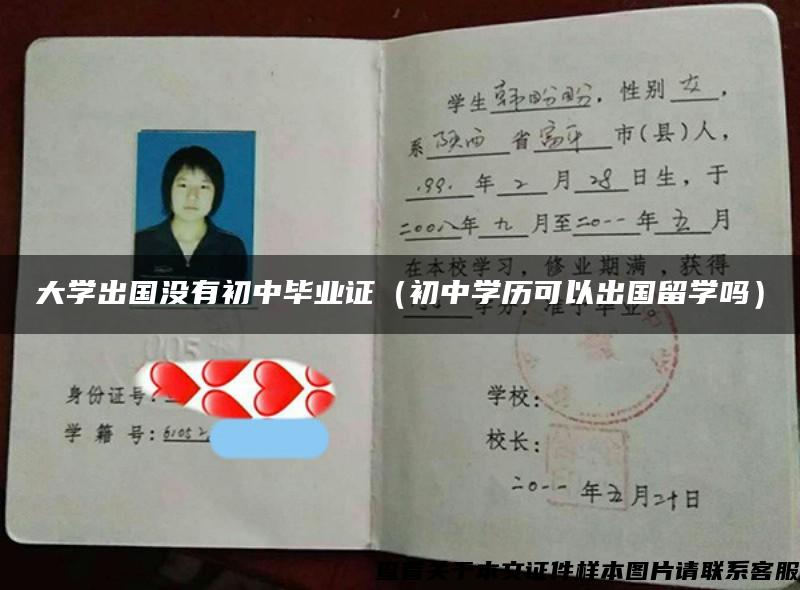 学生韩盼盼,性别女,
系陕西省富平市(县)人,
1991年2月28日生,于
二00八年九月至二0一一年五月
在本校学习,修业期满,获得
大学出国没有初中毕业证(初中学历可以出国留学吗)
学分,准予毕业。
005
身份证号:
学籍号:61052
学校:
校长:
二0一一年五月二十日
查看关于本文证件样本图片请联系客服